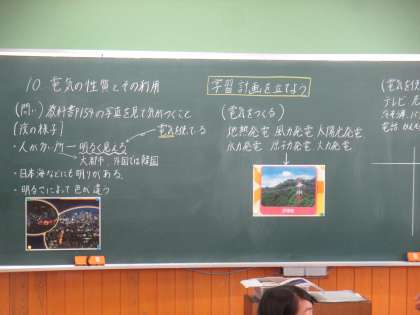 10 電気の性質とその利用
(問い) 教科書P159の写真を見て気がつくこと
(夜の様子)
電気を使ってる
・人が多い所 ― 明るく見える
大都市、外国では韓国
・日本海などにも明りがある。
・明るさによって色が違う
学習計画を立てよう
(電気をつくる)
地熱発電 風力発電 太陽光発電
水力発電 原子力発電 火力発電
(電気を使
テレビ